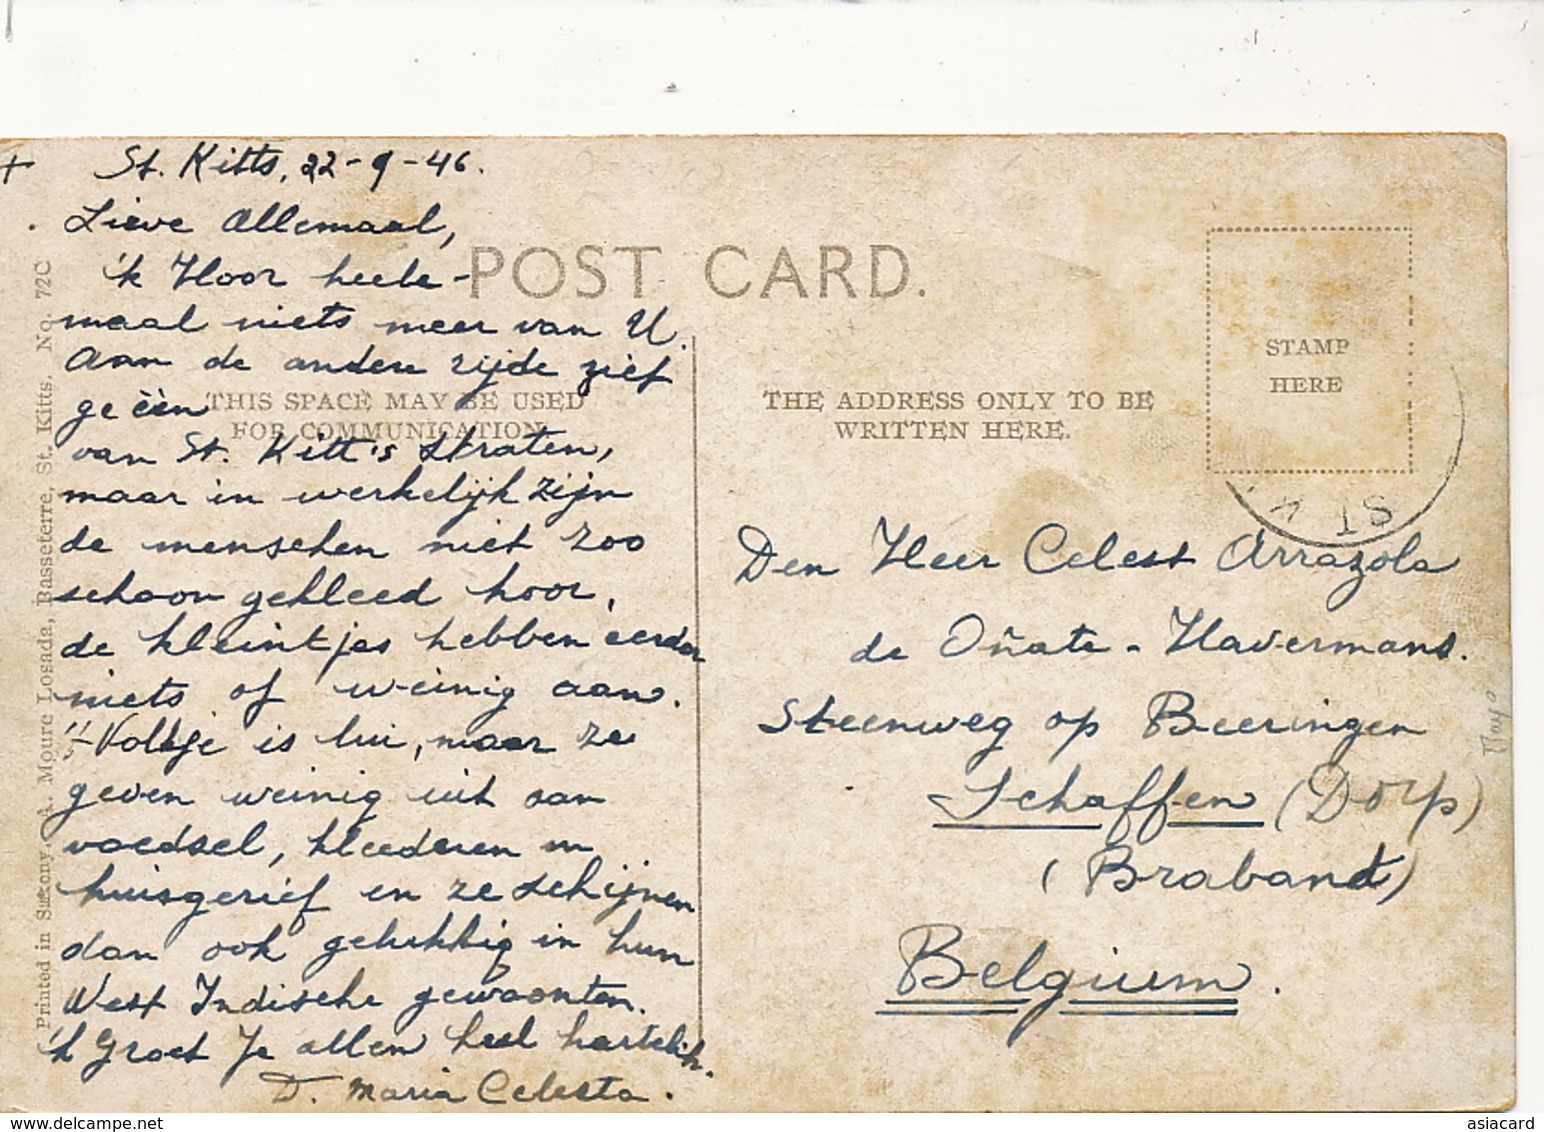 + St. Kitts, 22-9-46.
Lieve Allemaal,
'k Hoor heele-
maal niets meer van U.
Aan de andere zijde zief
ge één
van St. Kitt's straten,
maar in werkelijk zijn
de menschen niet zoo
schoon gekleed hoor,
de kleintjes hebben eerder
niets of weinig aan.
't Volkje is lui, maar ze
geven weinig uit aan
voedsel, kleederen en
huisgerief en ze schijnen
dan ook gelukkig in hun
West Indische gewoonten.
'k Groet Je allen heel hartelijk.
D. Maria Celesta.
POST CARD.
THIS SPACE MAY BE USED
FOR COMMUNICATION
THE ADDRESS ONLY TO BE
WRITTEN HERE.
STAMP
HERE
ST K
Den Heer Celest Arrazola
de Oñate - Havermans.
Steenweg op Beeringen
Schaffen (Dorp)
(Brabant)
Belgium.
Printed in Saxony. A. Moure Losada, Basseterre, St. Kitts. No. 72C
www.delcampe.net
asiacard